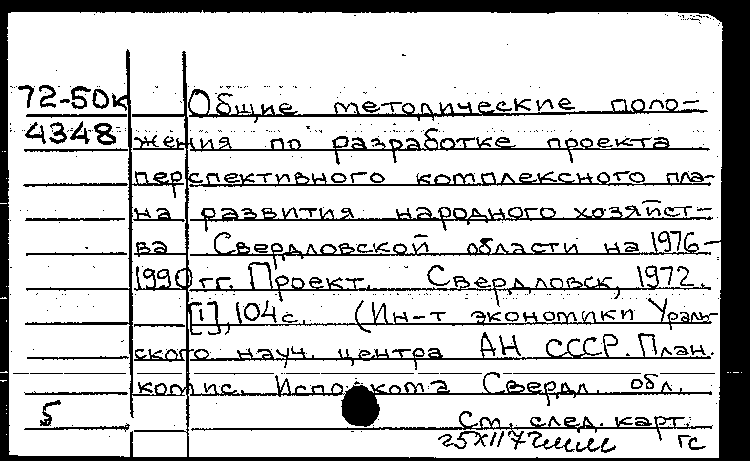 72-50к Общие методические поло-
4348 жения по разработке проекта
перспективного комплексного пла-
на развития народного хозяйст-
ва Свердловской области на 1976-
1990 гг. Проект. Свердловск, 1972.
[1], 104 с. (Ин-т экономики Ураль-
ского науч. центра АН СССР. План.
комис. Исполкома Свердл. обл.
5 См. след. карт.
25XII72 гс